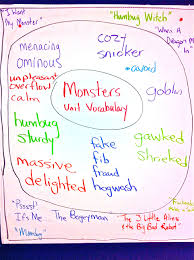 "I Want
My Monster"
"Humbug Witch"
"When A
Dragon M
In
cozy
snicker
menacing
ominous
unpleasant
overflow
calm
goblin
Monsters
Unit Vocabulary
humbug
sturdy
fake
fib
fraud
hogwash
gawked
shrieked
massive
delighted
"Pssst!
It's Me... The Bogeyman
"The 3 Little Aliens
& the Big Bad Robot"